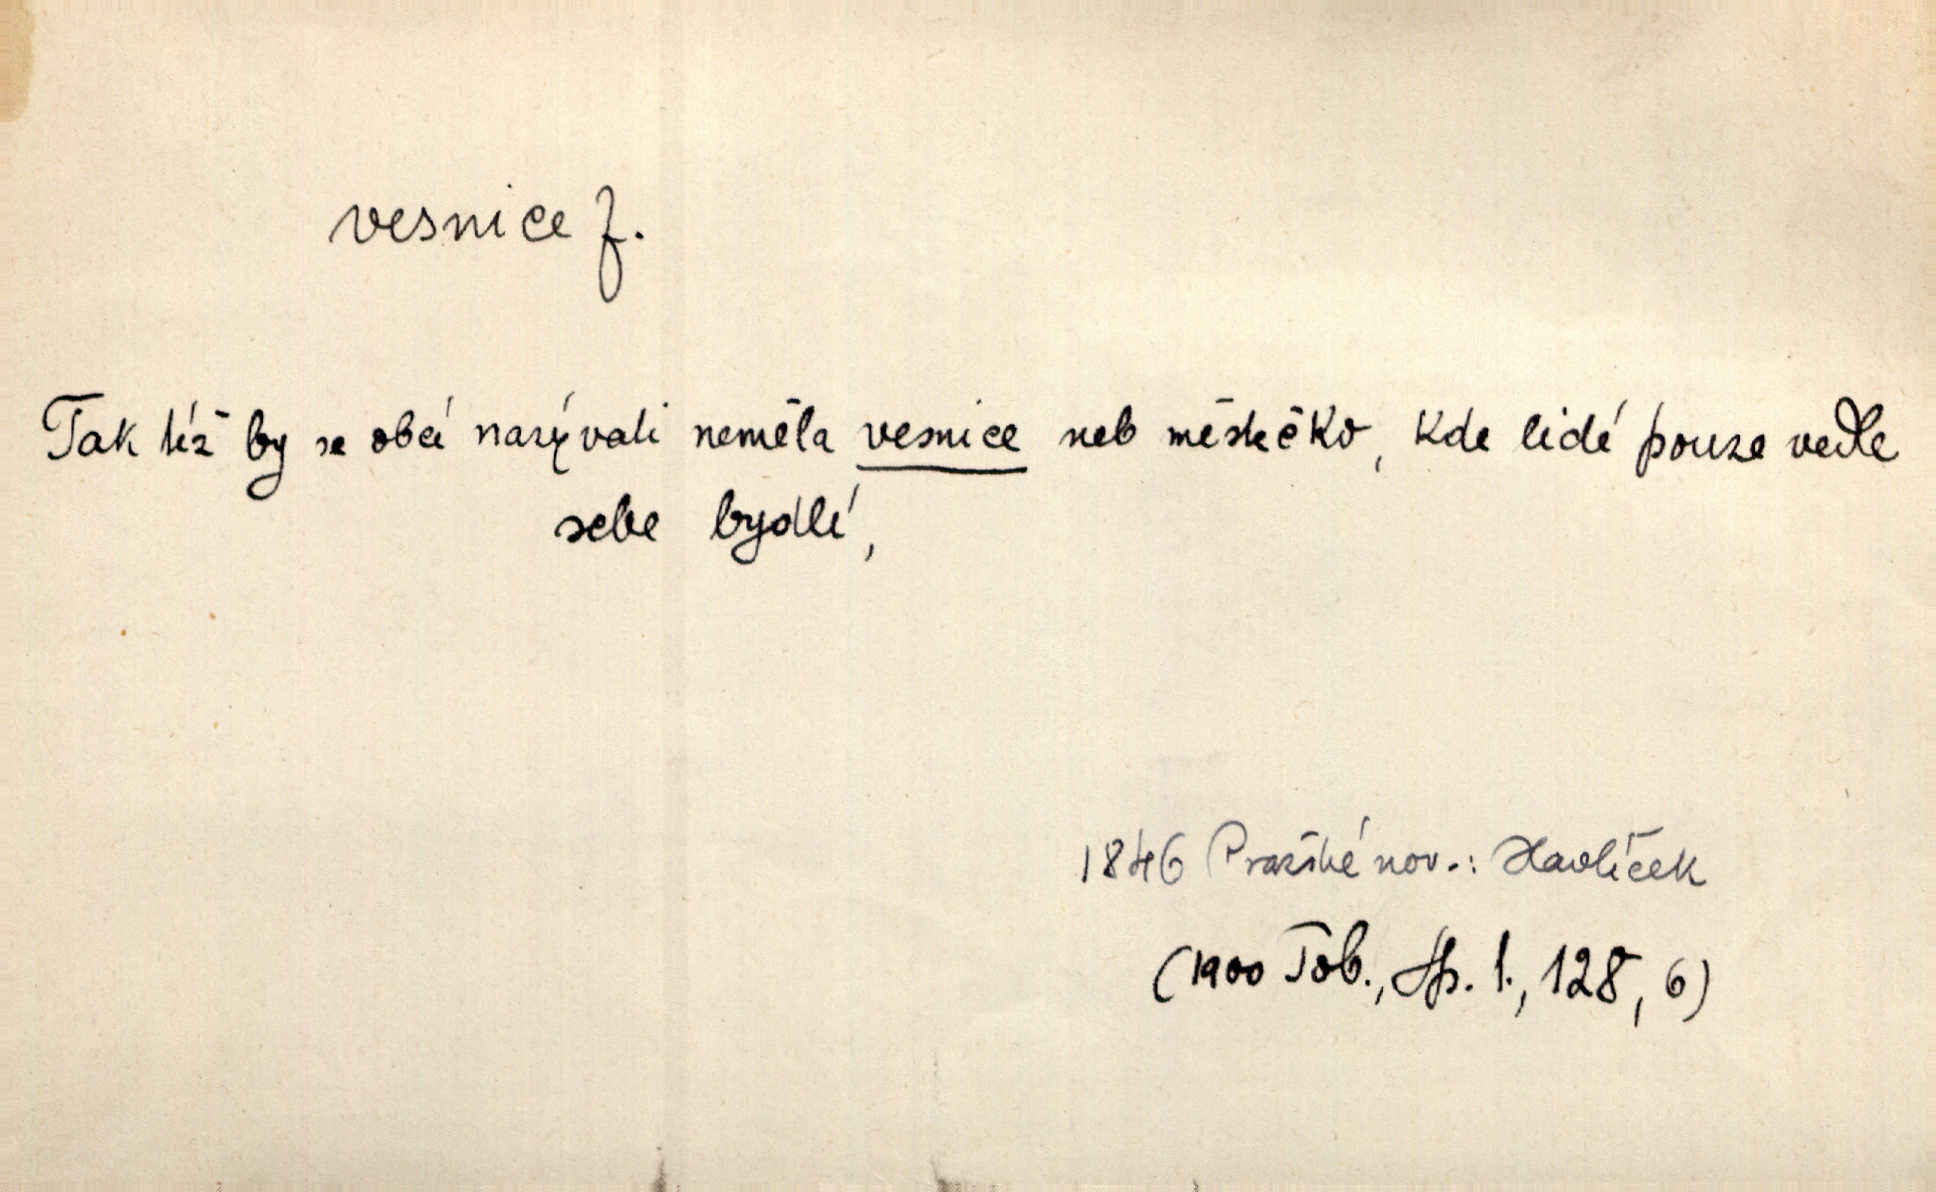 vesnice f.
Tak též by se obcí nazývati neměla vesnice neb městečko, kde lidé pouze vedle
sebe bydlí,
1846 Pražské nov.: Havlíček
(1900 Tob., Sp. 1., 128, 6)